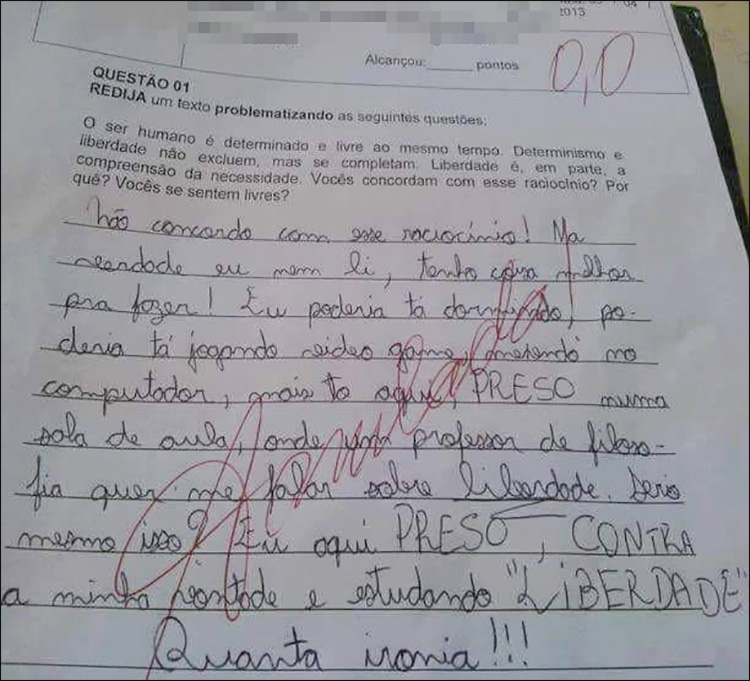 2013
Alcançou:______ pontos
0,0
QUESTÃO 01
REDIJA um texto problematizando as seguintes questões:
O ser humano é determinado e livre ao mesmo tempo. Determinismo e
liberdade não excluem, mas se completam. Liberdade é, em parte, a
compreensão da necessidade. Vocês concordam com esse raciocínio? Por
quê? Vocês se sentem livres?
Não concordo com esse raciocínio! Na
verdade eu nem li, tenho coisa melhor
pra fazer! Eu poderia tá dormindo, po-
deria tá jogando video game, mexendo no
computador, mais to aqui, PRESO numa
sala de aula, onde um professor de filoso-
fia quer me falar sobre liberdade. Serio
mesmo isso? Eu aqui PRESO, CONTRA
a minha vontade e estudando "LiBERDADE"
Quanta ironia!!!
Anulada!